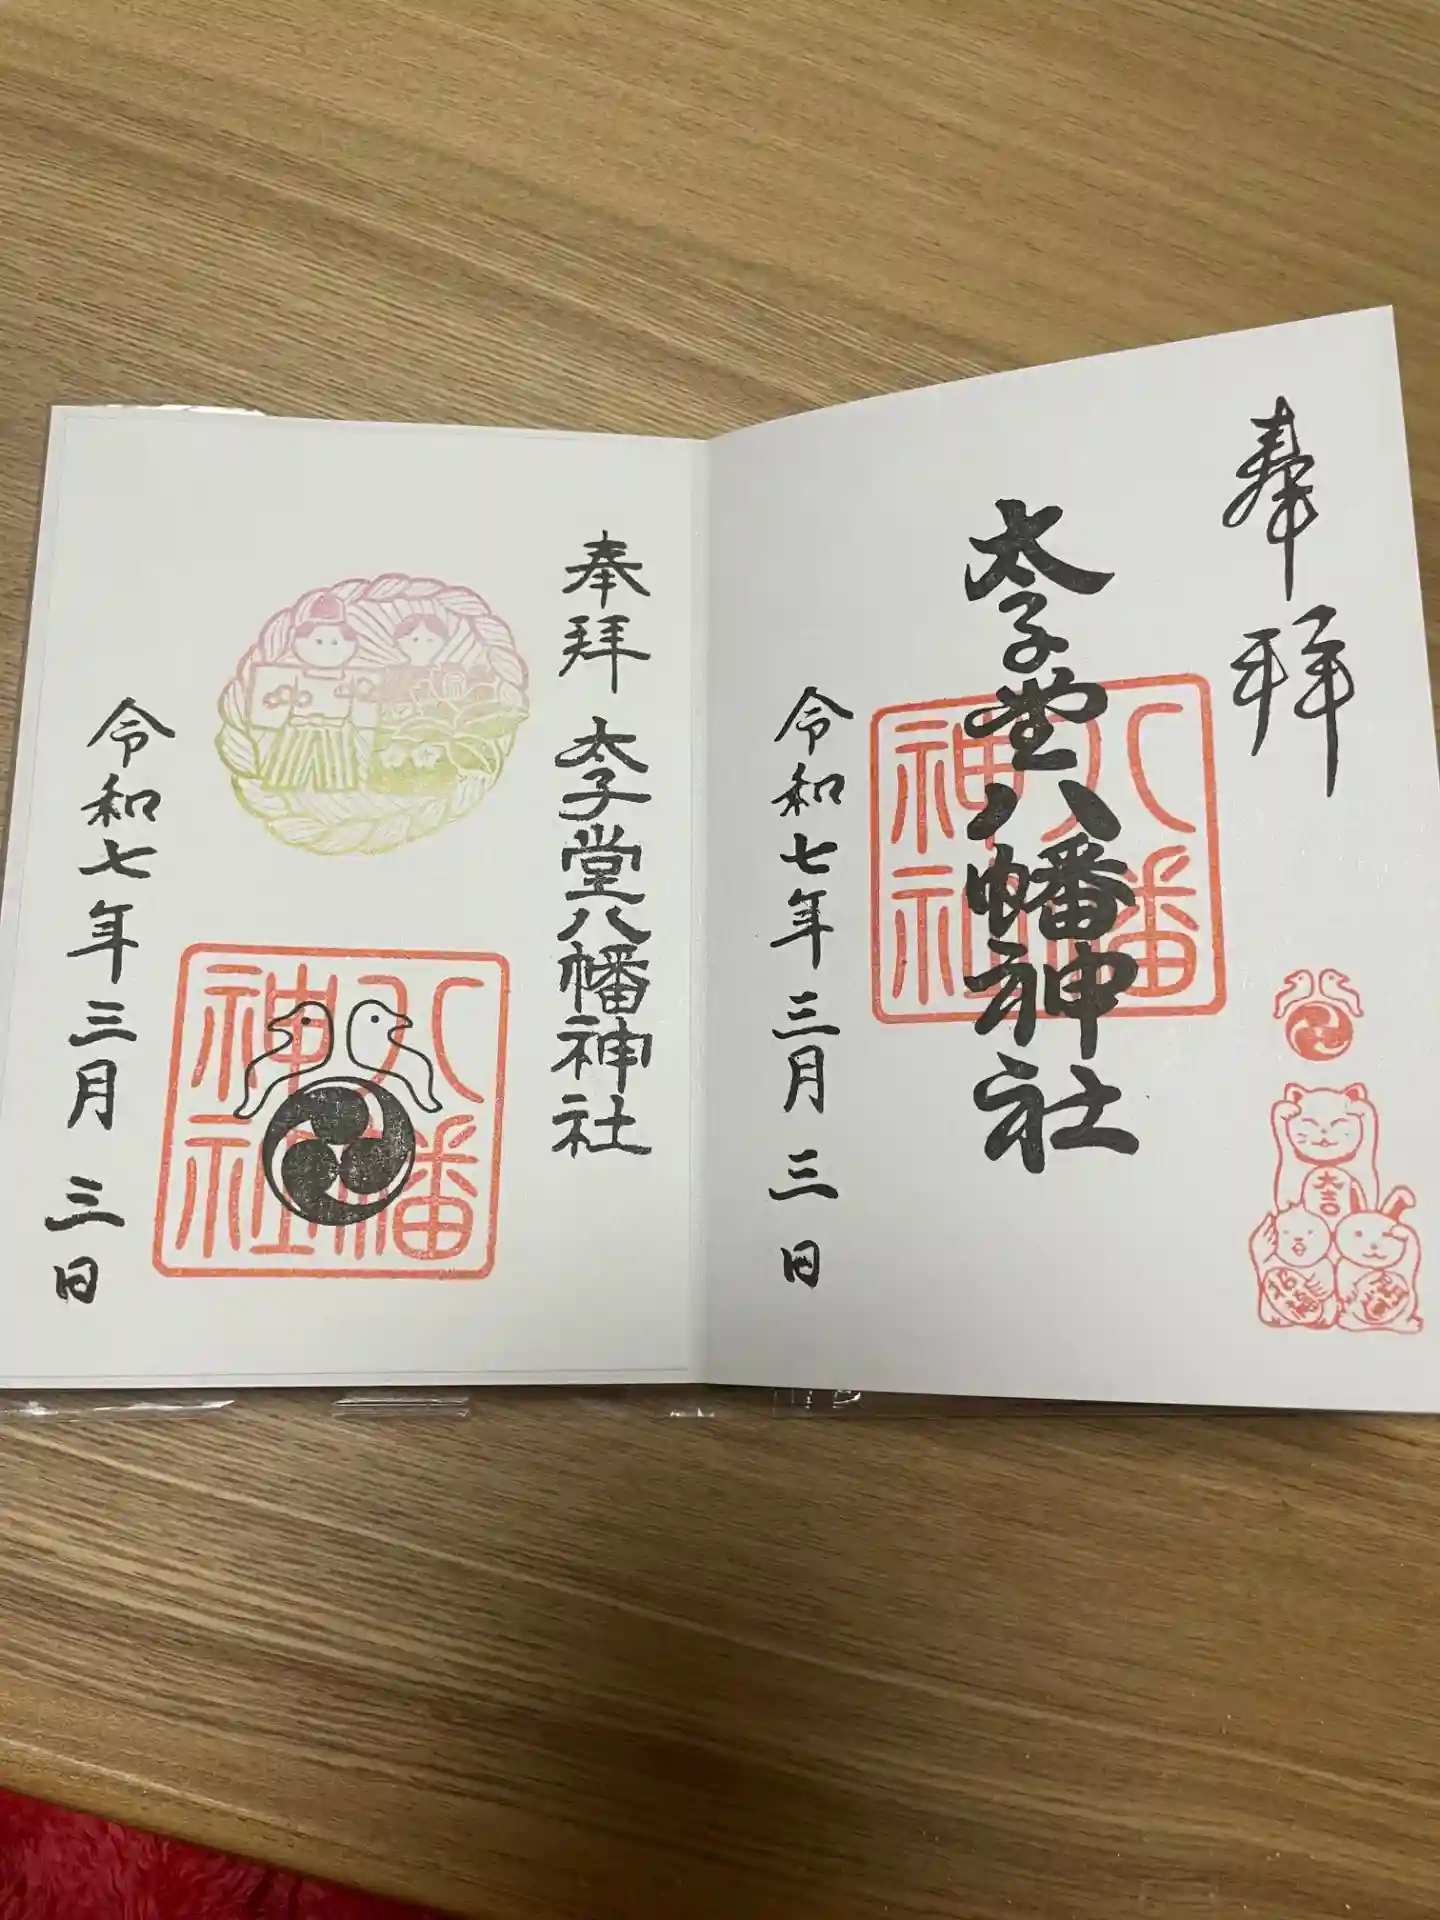 奉拝
太子堂八幡神社
八幡
神社
令和七年三月三日
大吉
招福
開運
奉拝
太子堂八幡神社
八幡
神社
令和七年三月三日